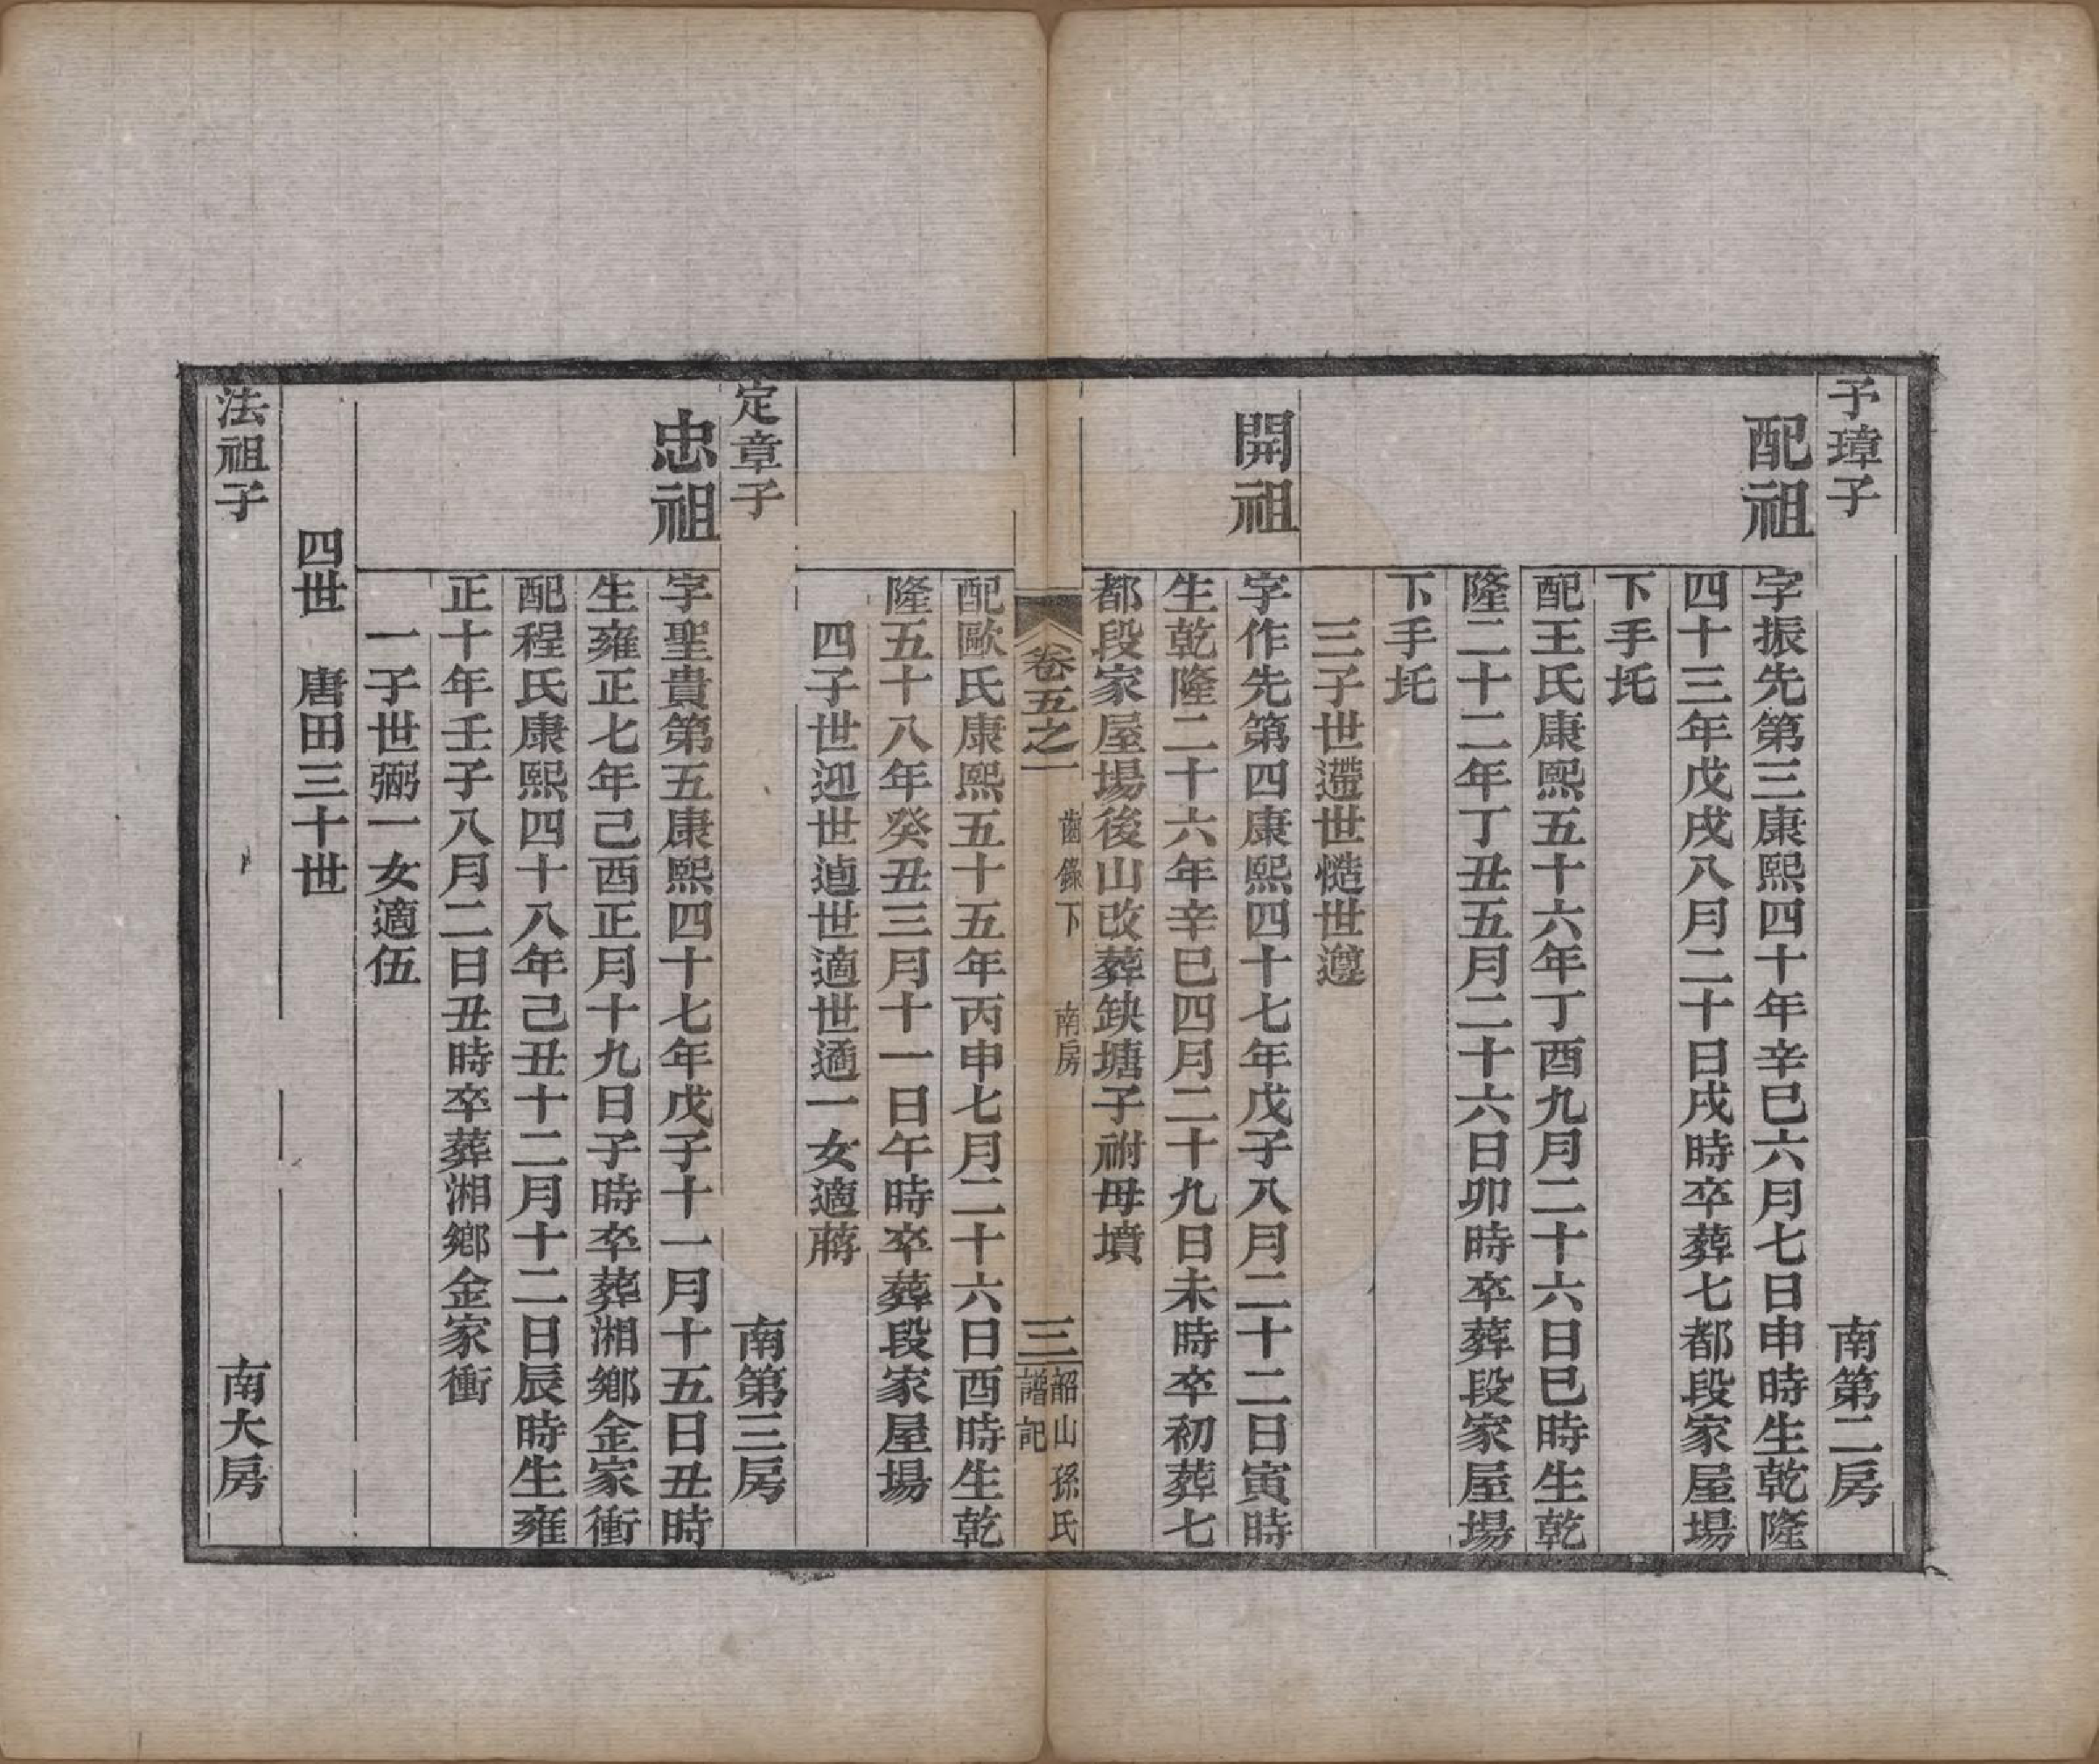 予璋子　南第二房
配祖　字振先第三康熙四十年辛巳六月七日申時生乾隆
四十三年戊戌八月二十日戌時卒葬七都段家屋場
下手坉
配王氏康熙五十六年丁酉九月二十六日巳時生乾
隆二十二年丁丑五月二十六日卯時卒葬段家屋場
下手坉
三子世遰世慥世遵
開祖　字作先第四康熙四十七年戊子八月二十二日寅時
生乾隆二十六年辛巳四月二十九日未時卒初葬七
都段家屋場後山改葬缺塘子祔母墳
卷五之一　齒錄下　南房　三　韶山孫氏譜記
配歐氏康熙五十五年丙申七月二十六日酉時生乾
隆五十八年癸丑三月十一日午時卒葬段家屋場
四子世迎世逌世適世遹一女適蔣
定章子　南第三房
忠祖　字聖貴第五康熙四十七年戊子十一月十五日丑時
生雍正七年己酉正月十九日子時卒葬湘鄉金家衝
配程氏康熙四十八年己丑十二月十二日辰時生雍
正十年壬子八月二日丑時卒葬湘鄉金家衝
一子世弼一女適伍
四世　唐田三十世
法祖子　南大房